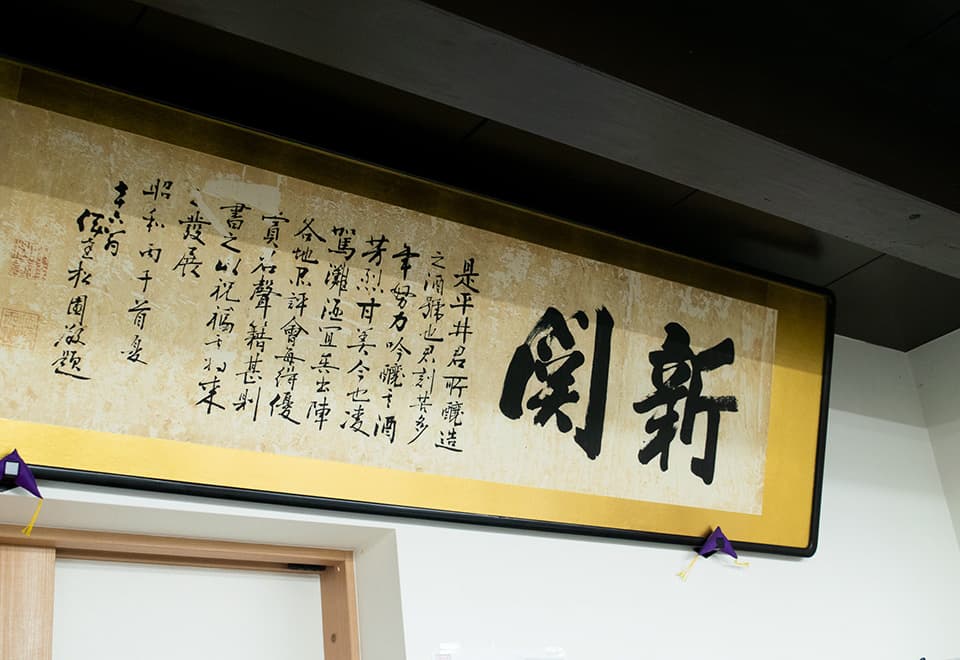 新関
是平井君所醸造
之酒號也君刻苦多
年努力吟醸其酒
芳烈甘美今也凌
駕灘酒宜矣出陣
各地品評會毎得優
賞名聲籍甚則
書之以祝福于将来
發展
昭和丙子首夏
松園敬題